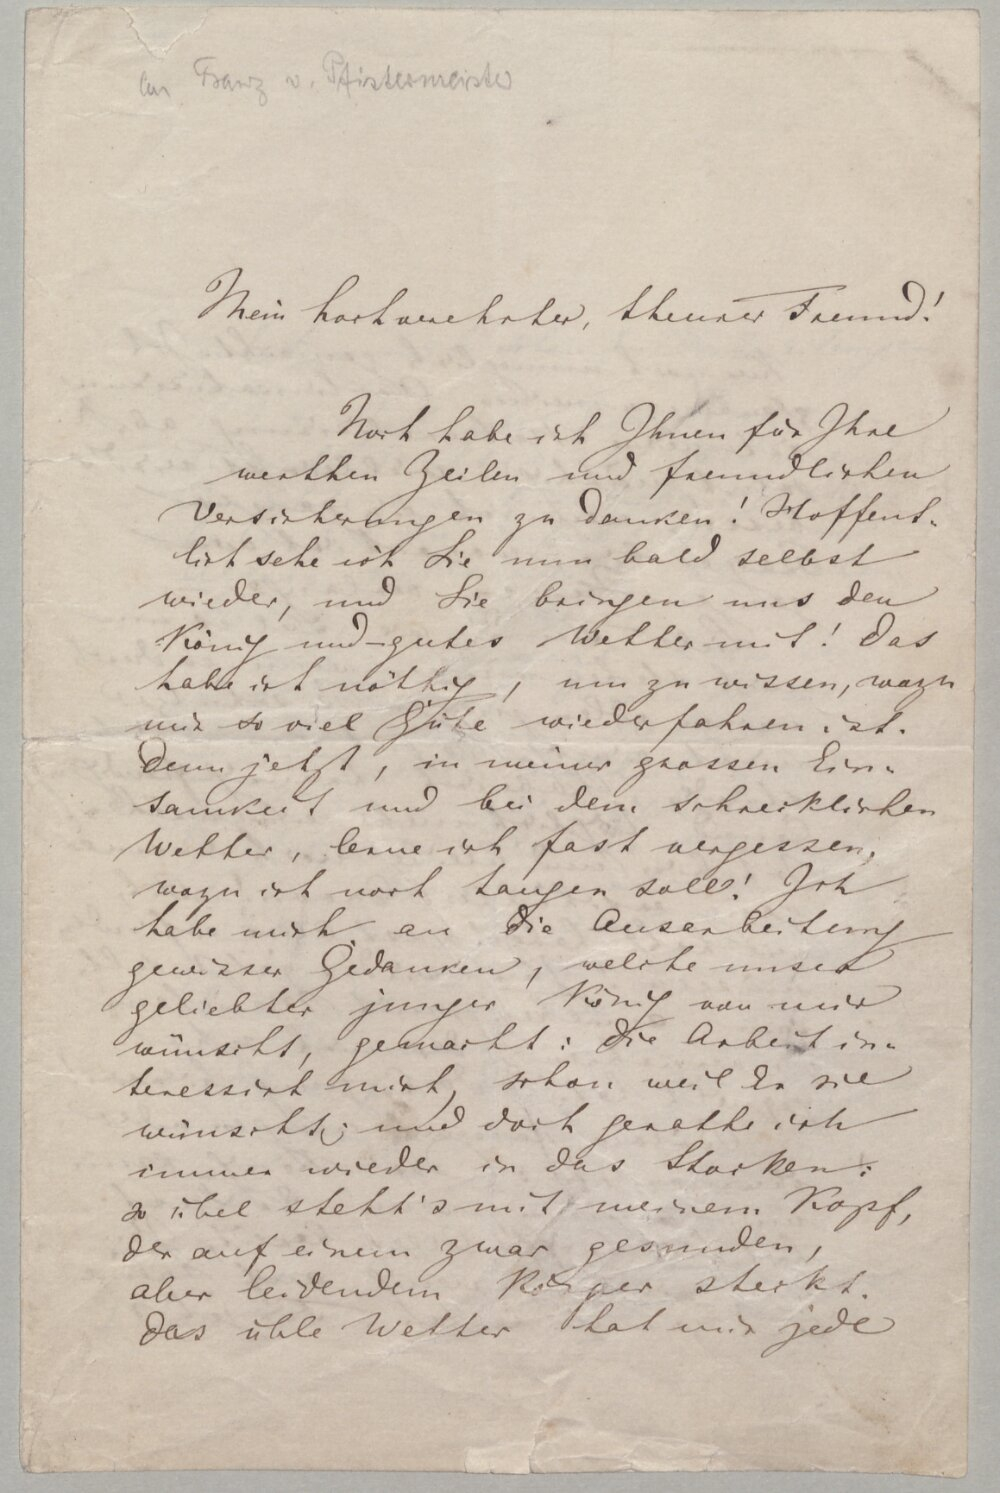 An Franz v. Pfistermeister
Mein hochverehrter, theurer Freund!
Noch habe ich Ihnen für Ihre
werthen Zeilen und freundlichen
Versicherungen zu danken! Hoffent-
lich sehe ich Sie nun bald selbst
wieder, und Sie bringen uns den
König und gutes Wetter mit! Das
habe ich nöthig, um zu wissen, wozu
mir so viel Güte wiederfahren ist.
Denn jetzt, in meiner grossen Ein-
samkeit und bei dem schrecklichen
Wetter, lerne ich fast vergessen,
wozu ich noch taugen soll! Ich
habe mich an die Ausarbeitung
gewisser Gedanken, welche unser
geliebter junger König von mir
wünscht, gemacht: die Arbeit in-
teressirt mich, schon weil Er sie
wünscht; und doch gerathe ich
immer wieder in das Stocken:
so übel steht's mit meinem Kopf,
der auf einem zwar gesunden,
aber leidendem Körper steckt.
Das üble Wetter hat mir jede